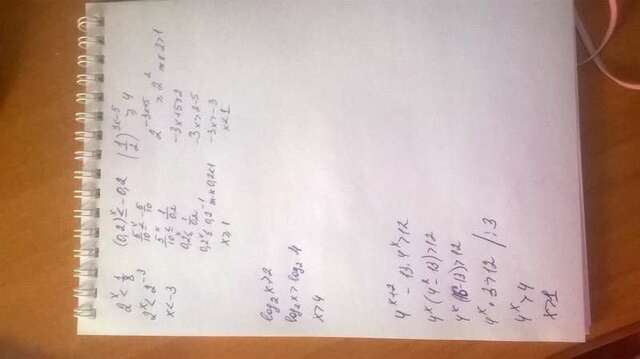 2^x < 1/8
2^x < 2^-3
x < -3
(0,2)^x ≤ -0,2
0,2^x ≤ 1/0,2
0,2^x ≤ 0,2^-1 т.к 0,2<1
x ≥ 1
(1/2)^3x-5 > 4
2^-3x+5 > 2^2 т.к 2>1
-3x+5>2
-3x>2-5
-3x>-3
x<1
log₂x>2
log₂x>log₂4
x>4
4^x+2 - 13·4^x>12
4^x(4^2-13)>12
4^x(16-13)>12
4^x·3>12 /:3
4^x>4
x>1